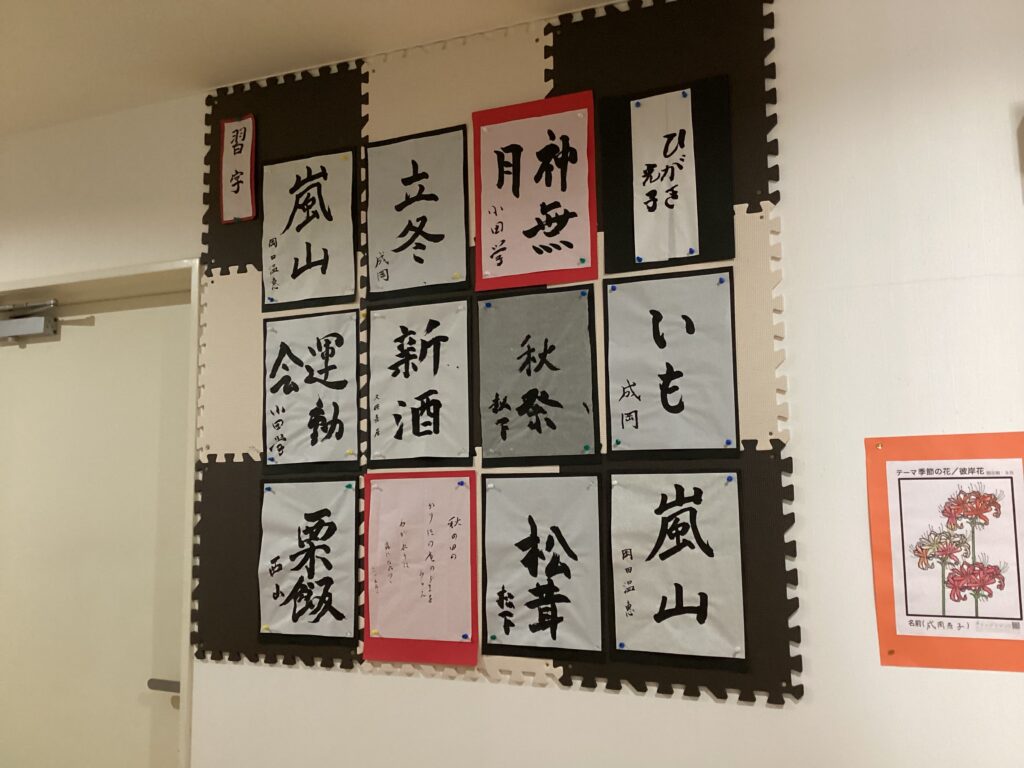 習字
嵐山
岡田温恵
立冬
成岡
神無月
小田學
ひがき
光子
運動会
小田學
新酒
秋祭
松下
いも
成岡
栗飯
西山
秋の田の
かりほの庵の
松茸
松下
嵐山
岡田温恵
テーマ季節の花／彼岸花
名前(成岡 子)